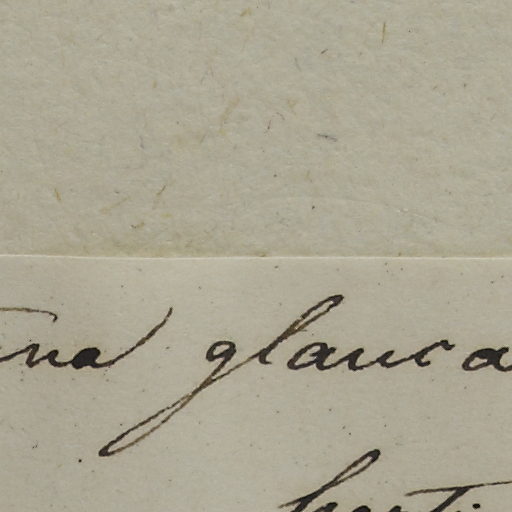 na glauca
horti